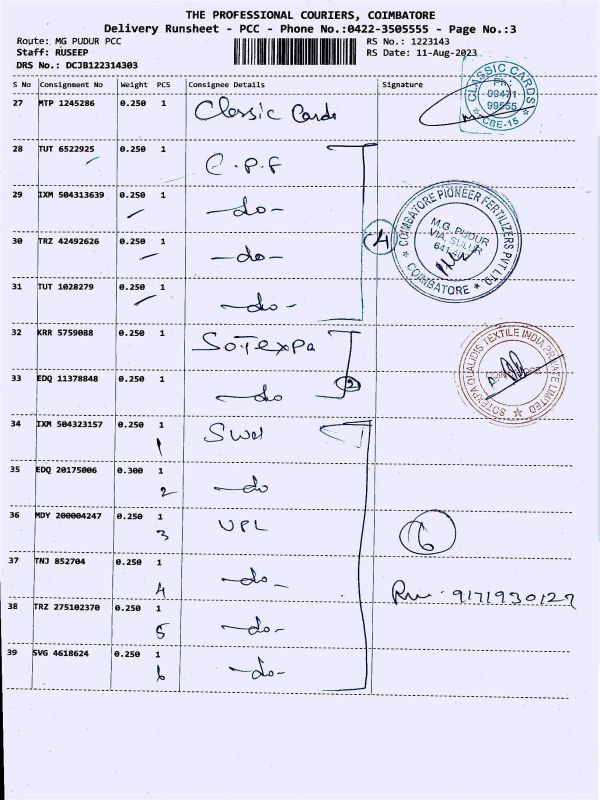 THE PROFESSIONAL COURIERS, COIMBATORE
Delivery Runsheet - PCC - Phone No.:0422-3505555 - Page No.:3
Route: MG PUDUR PCC
RS No.: 1223143
Staff: RUSEEP
RS Date: 11-Aug-2023
DRS No.: DCJB122314303
S No Consignment No Weight PCS Consignee Details Signature
27 MTP 1245286 0.250 1 Classic Cards
CLASSIC CARDS
Ph:
99555
CBE-15
28 TUT 6522925 0.250 1 C.P.F
29 IXM 504313639 0.250 1 -do-
30 TRZ 42492626 0.250 1 -do-
4
COIMBATORE PIONEER FERTILIZERS PVT LTD
M.G. PUDUR
VIA. SULUR
COIMBATORE
31 TUT 1028279 0.250 1 -do-
32 KRR 5759088 0.250 1 SOTEXPa
33 EDQ 11378848 0.250 1 -do
2
SOTEXPA QUALIDIS TEXTILE INDIA PRIVATE LIMITED
34 IXM 504323157 0.250 1 Swel
1
35 EDQ 20175006 0.300 1 -do
2
36 MDY 200004247 0.250 1 UPL
3
6
37 TNJ 852704 0.250 1 -do-
4
9171930127
38 TRZ 275102370 0.250 1 -do-
5
39 SVG 4618624 0.250 1 -do-
6